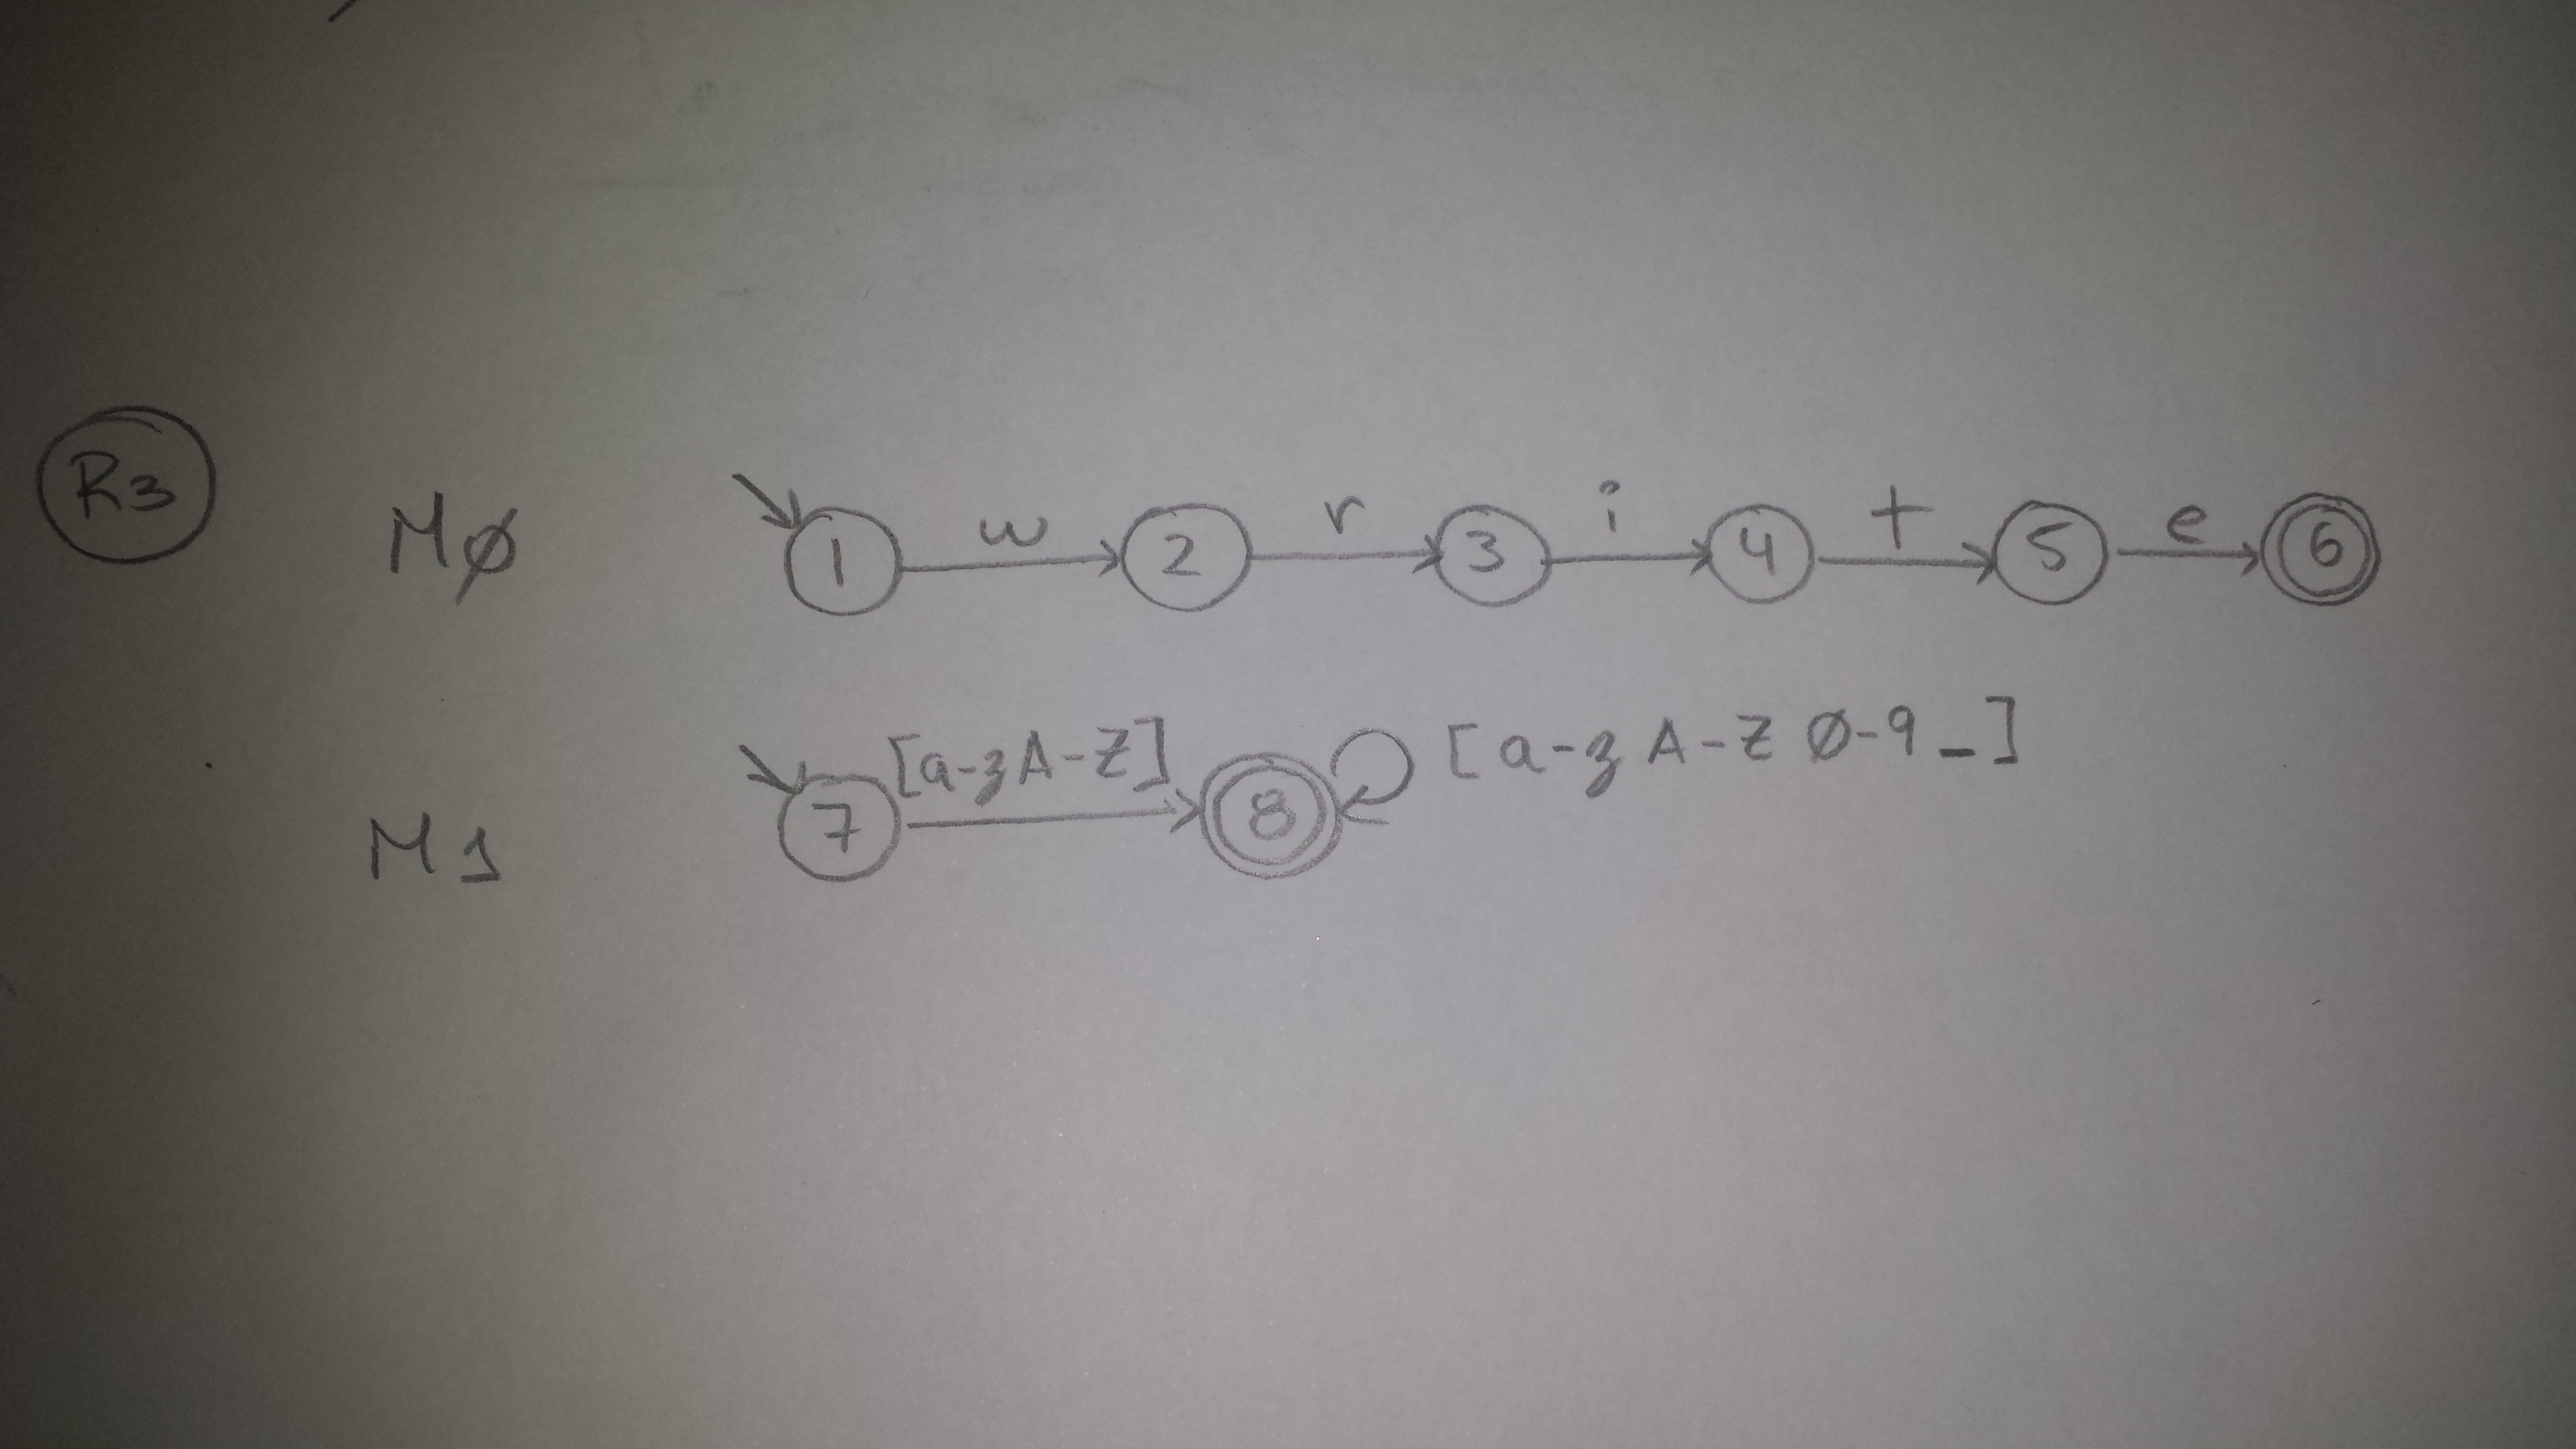 R3
MØ
1 w 2 r 3 i 4 t 5 e 6
M1
7 [a-zA-Z] 8 [a-z A-Z Ø-9 _]